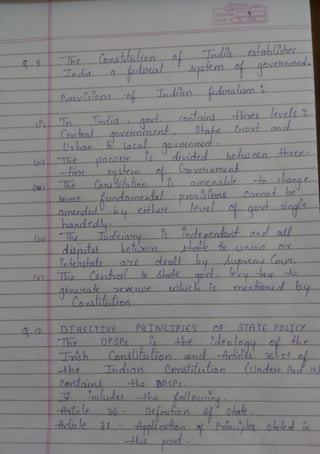 Q.8 The Constitution of India establishes
India a federal system of government.
Provisions of Indian federalism :
(i) In India, govt. contains three levels :
Central government, State Govt and
Urban & local government.
(ii) The power is divided between three-
-tier system of Government.
(iii) The Constitution is amenable to change
some fundamental provisions cannot be
amended by either level of govt single
handedly.
(iv) The Judiciary is independent and all
disputes between state to union or
interstate are dealt by Supreme Court.
(v) The Central & state govt. levy tax to
generate revenue which is mentioned by
Constitution.
Q.12 DIRECTIVE PRINCIPLES OF STATE POLICY
The DPSPs is the ideology of the
Irish Constitution and Articles of
the Indian Constitution (Under Part
contains the DPSPs.
It includes the following.
Article 36 - Definition of state.
Article 37 - Application of Principles stated in
this part.